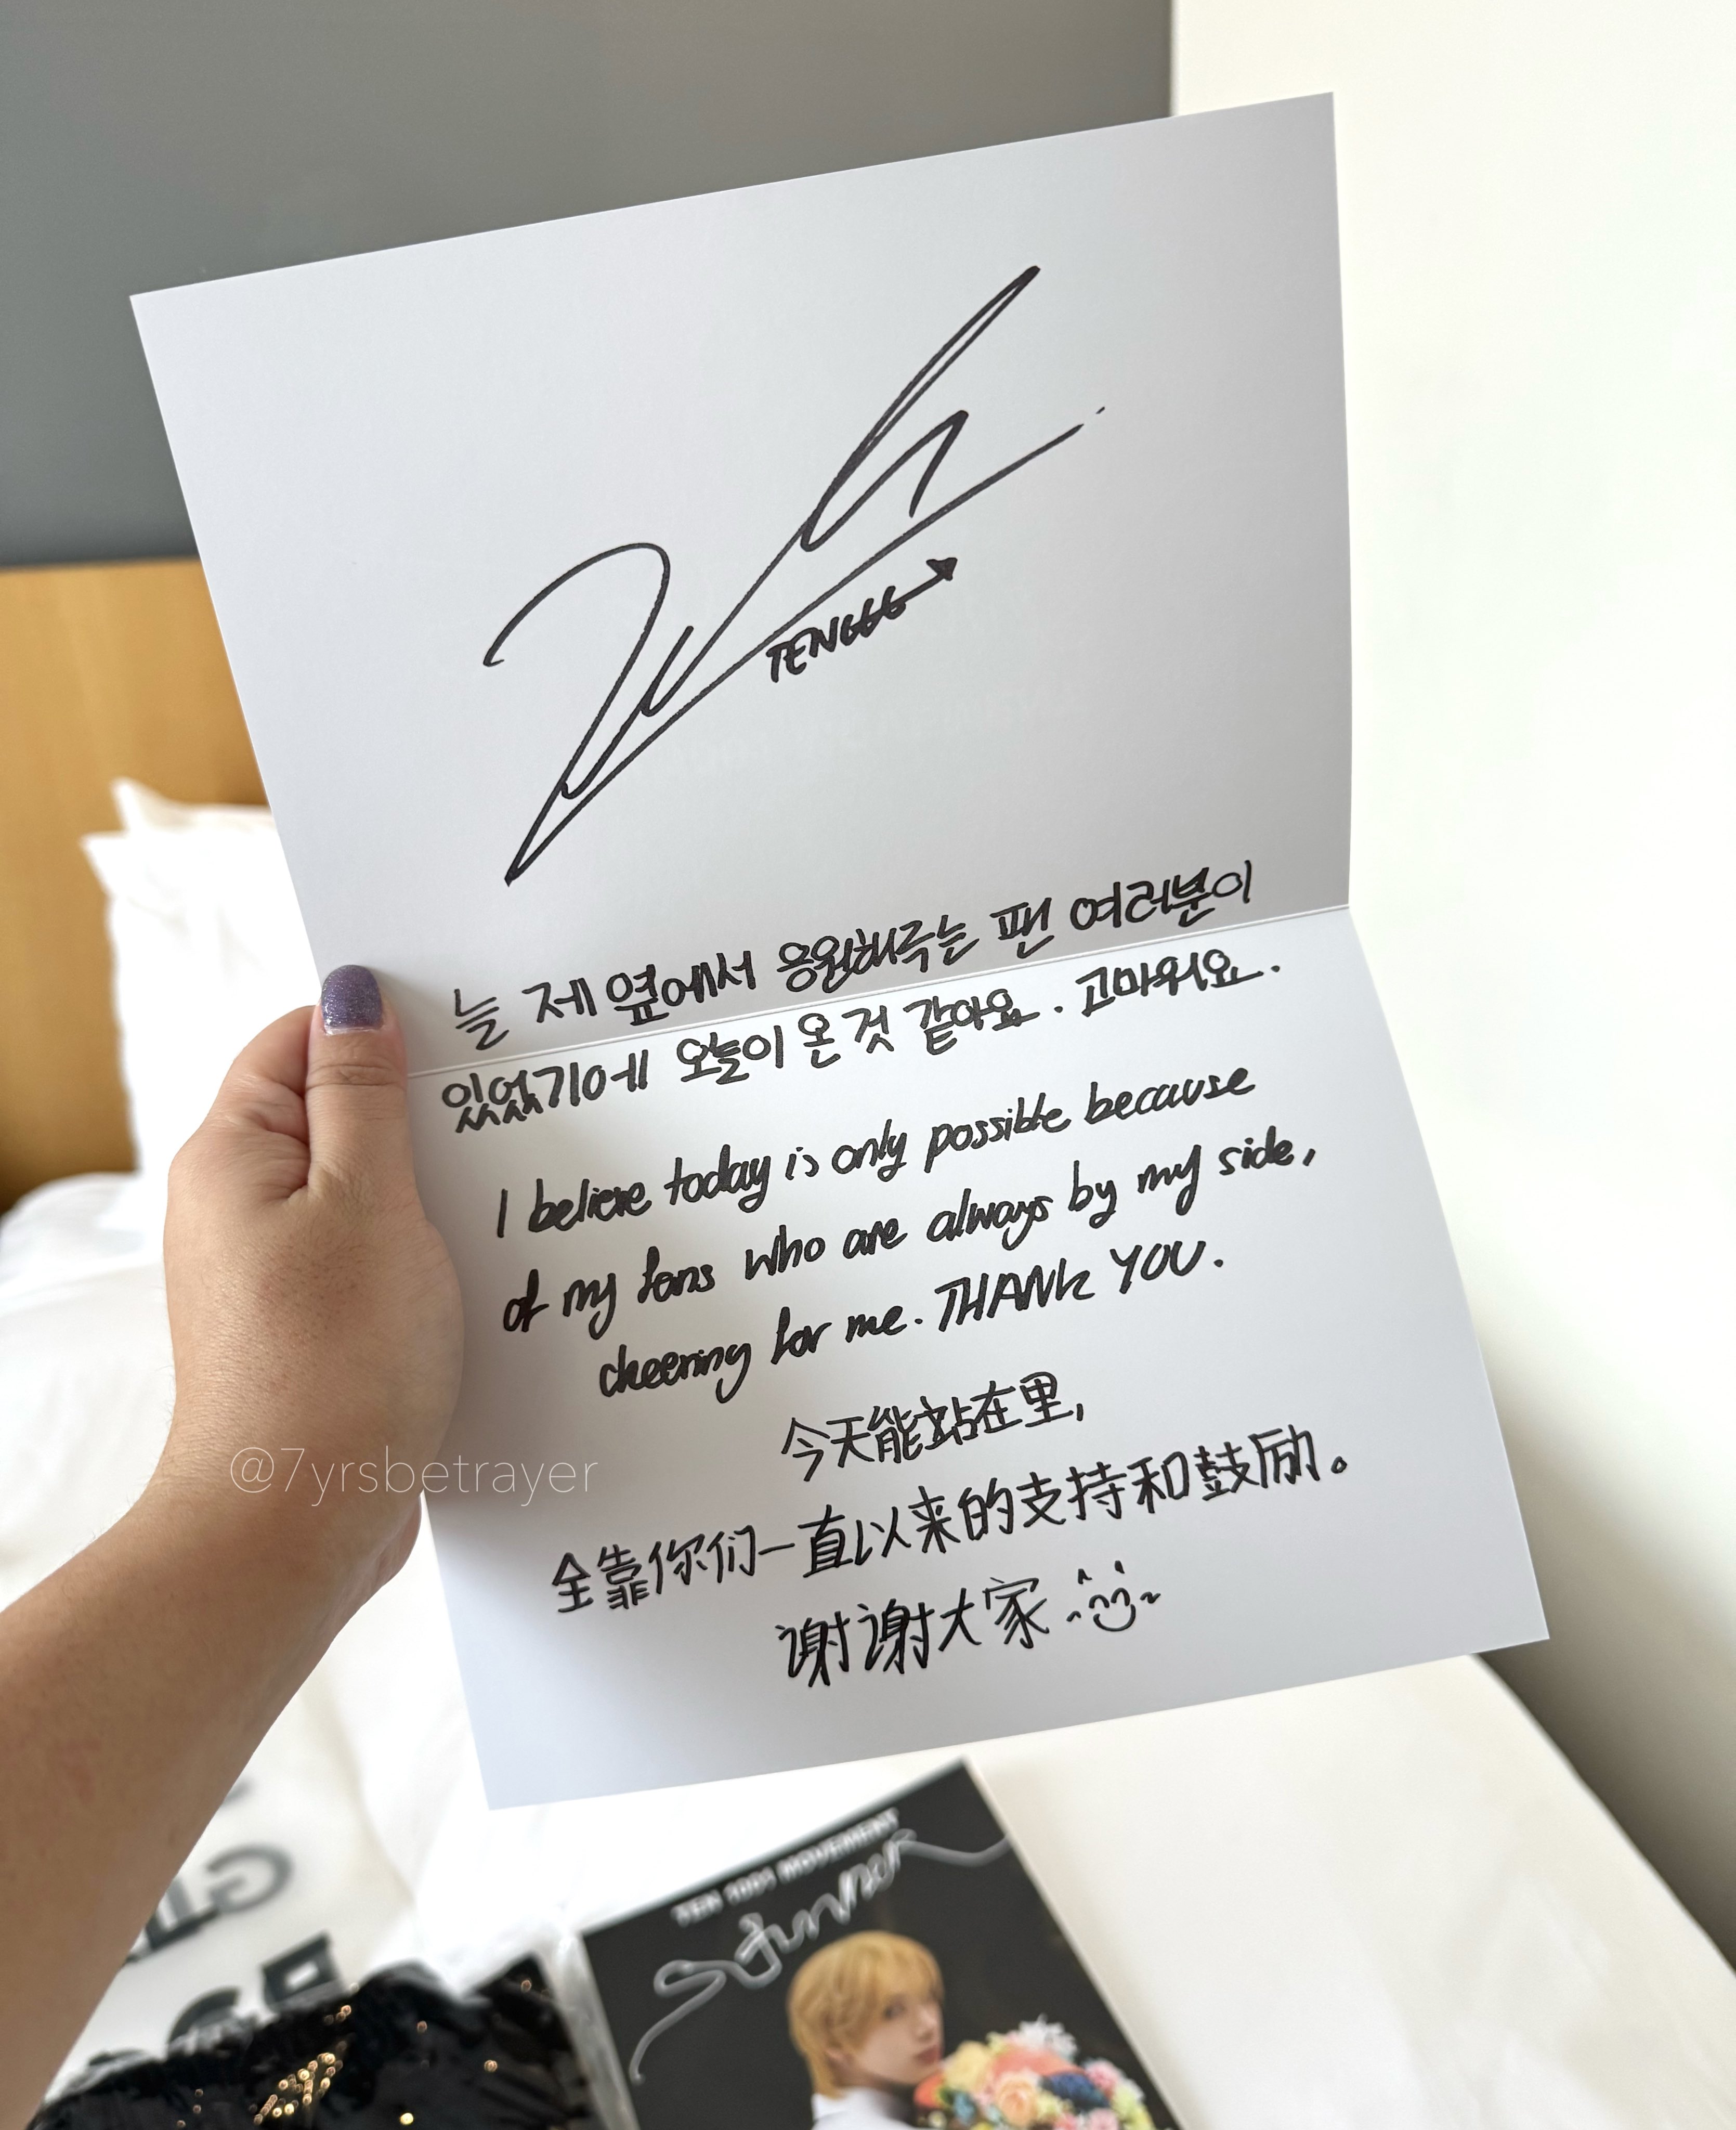 TENGGG
늘 제 옆에서 응원해주는 팬 여러분이
있었기에 오늘이 온 것 같아요. 고마워요.
I believe today is only possible because
of my fans who are always by my side,
cheering for me. THANK YOU.
今天能站在里,
全靠你们一直以来的支持和鼓励。
谢谢大家
@7yrsbetrayer
TEN 2001 MOVEMENT
Stunner